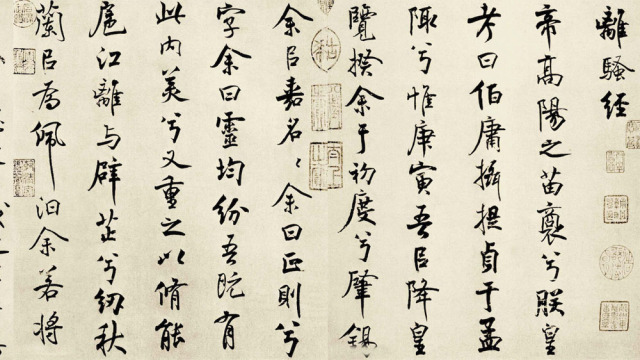 離騷經
帝高陽之苗裔兮朕皇
考曰伯庸攝提貞于孟
陬兮惟庚寅吾㠯降皇
覽揆余于初度兮肇錫
余㠯嘉名〻余曰正則兮
字余曰靈均紛吾既有
此内美兮又重之以脩能
扈江離与辟芷兮紉秋
蘭㠯為佩汩余若將